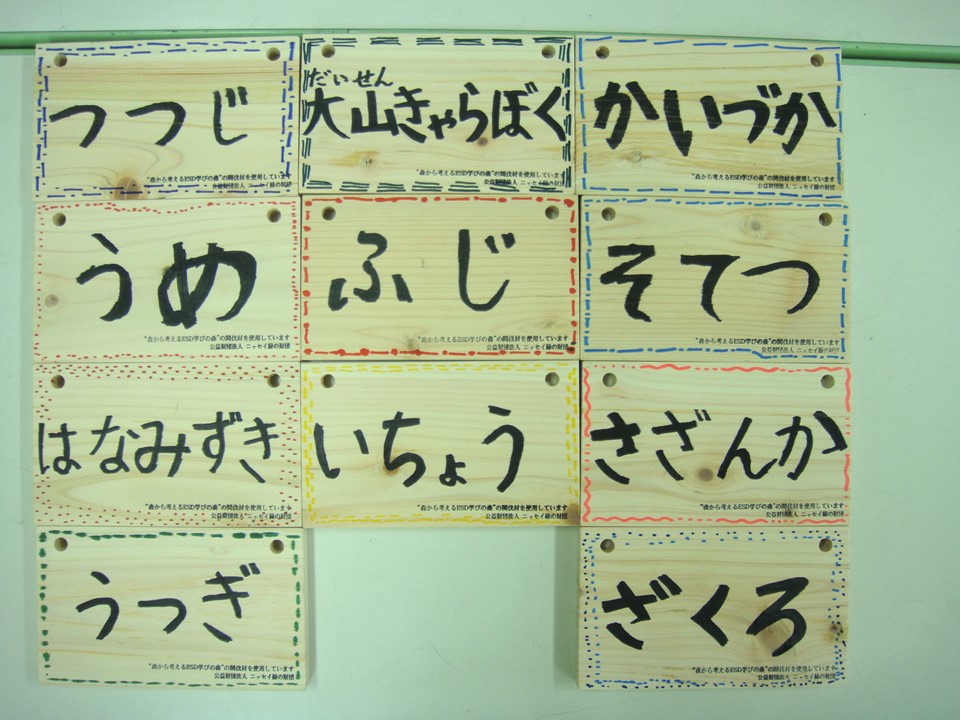 つつじ
"森から考えるESD学びの森"の間伐材を使用しています
公益財団法人 ニッセイ緑の財団
だいせん
大山きゃらぼく
"森から考えるESD学びの森"の間伐材を使用しています
公益財団法人 ニッセイ緑の財団
かいづか
"森から考えるESD学びの森"の間伐材を使用しています
公益財団法人 ニッセイ緑の財団
うめ
"森から考えるESD学びの森"の間伐材を使用しています
公益財団法人 ニッセイ緑の財団
ふじ
"森から考えるESD学びの森"の間伐材を使用しています
公益財団法人 ニッセイ緑の財団
そてつ
"森から考えるESD学びの森"の間伐材を使用しています
公益財団法人 ニッセイ緑の財団
はなみずき
"森から考えるESD学びの森"の間伐材を使用しています
公益財団法人 ニッセイ緑の財団
いちょう
"森から考えるESD学びの森"の間伐材を使用しています
公益財団法人 ニッセイ緑の財団
さざんか
"森から考えるESD学びの森"の間伐材を使用しています
公益財団法人 ニッセイ緑の財団
うつぎ
"森から考えるESD学びの森"の間伐材を使用しています
公益財団法人 ニッセイ緑の財団
ざくろ
"森から考えるESD学びの森"の間伐材を使用しています
公益財団法人 ニッセイ緑の財団